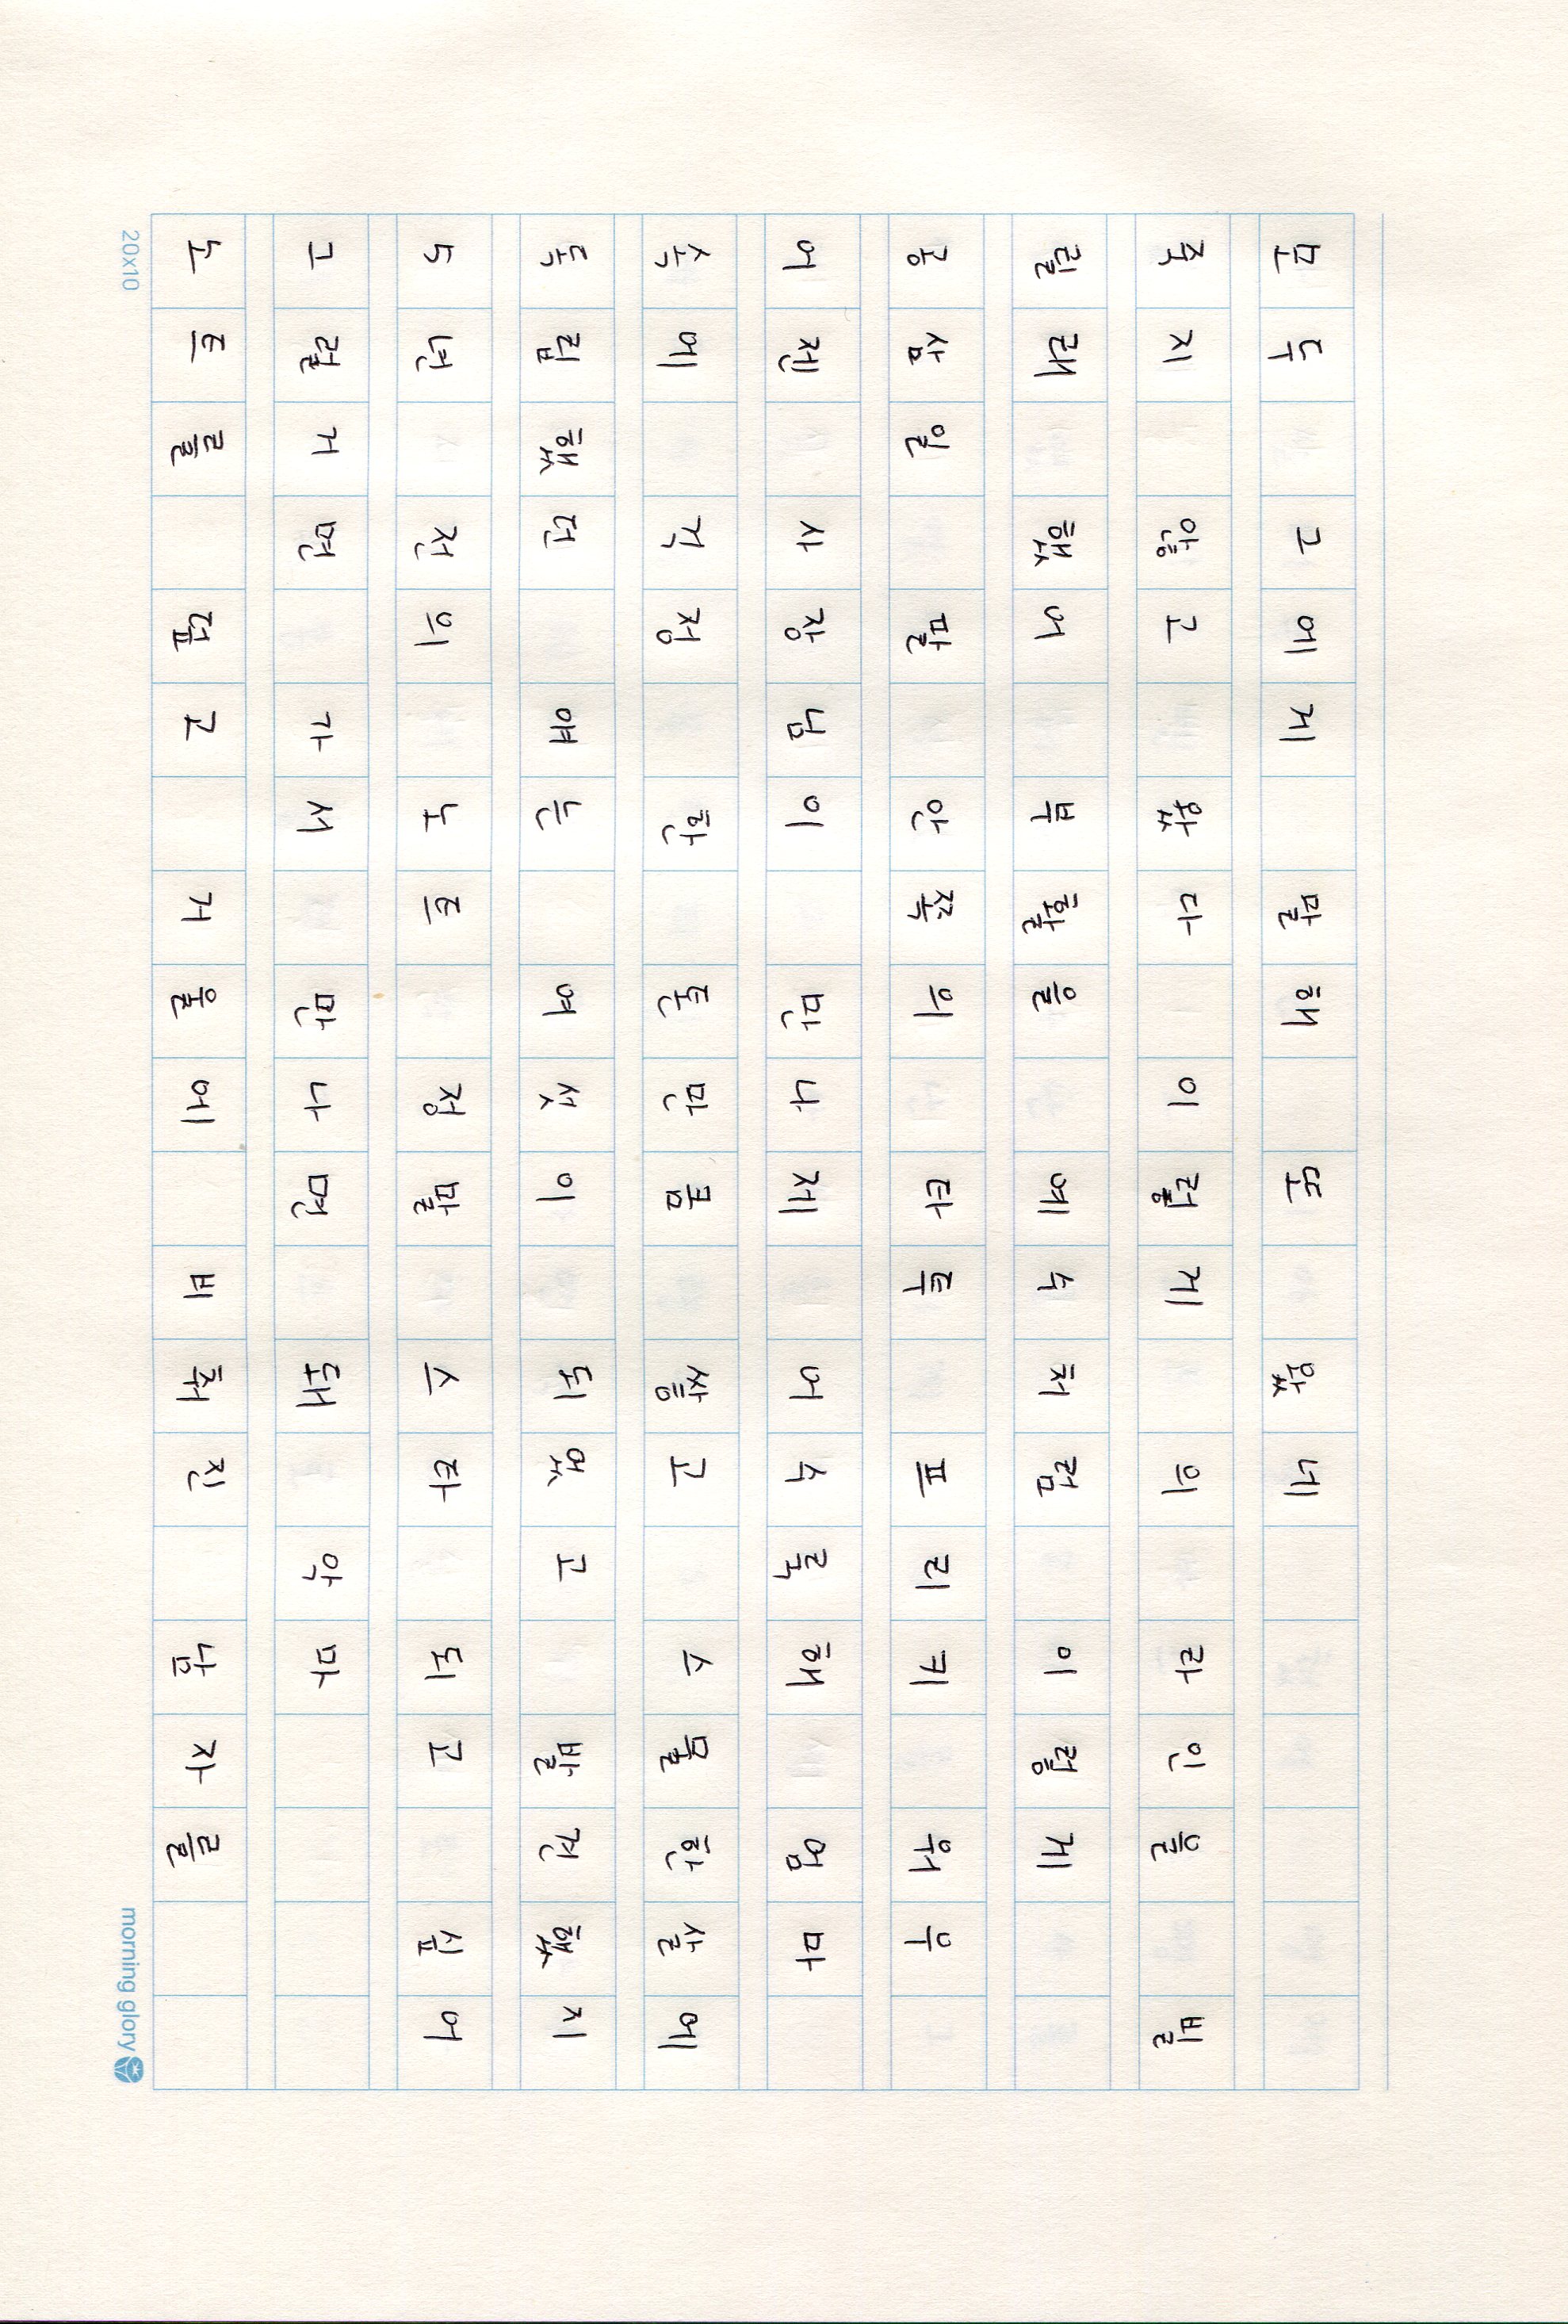 모두 그에게 말해 또 왔네
죽지 않고 왔다 이렇게 의 라인을 빌
릴래 했어 부활을 예수처럼 이렇게
공삼일 팔 안쪽의 타투 프리키 워우
어젠 사장님이 만나제 어수룩해 엄마
속에 걱정 한 톤만큼 쌓고 스물한살에
독립했던 얘는 여섯이 되었고 발견했지
5년 전의 노트 정말 스타 되고 싶어
그럴거면 가서 만나면 돼 악마
노트를 덮고 거울에 비춰진 남자를
20x10 morning glory